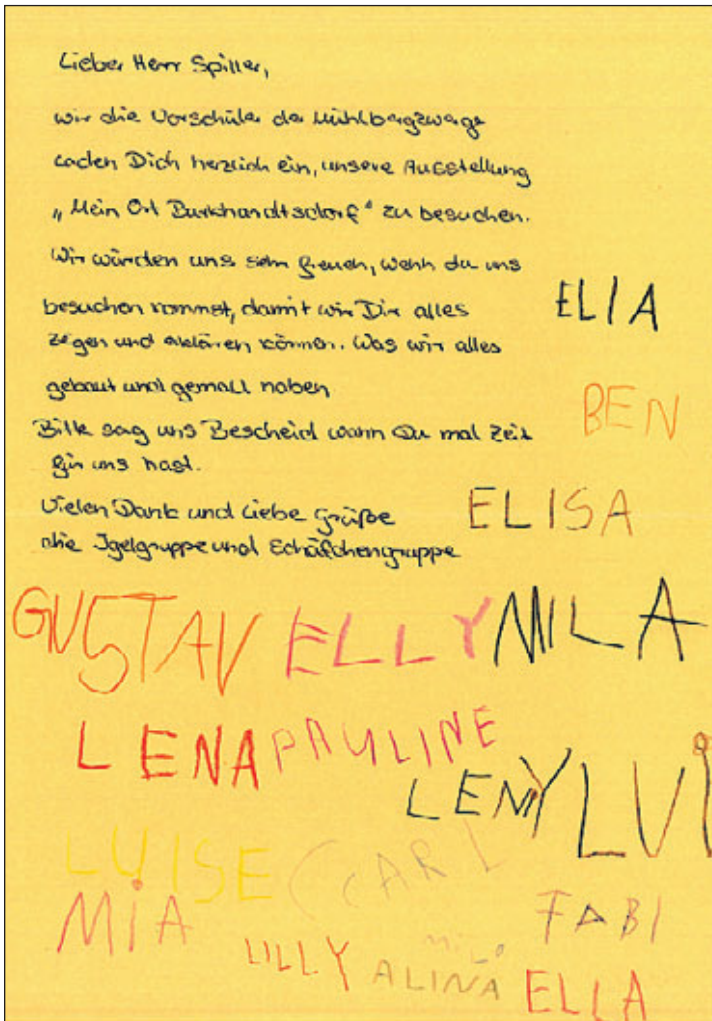 Lieber Herr Spiller,
wir die Vorschüler der Mühlbergzwerge
laden Dich herzlich ein, unsere Ausstellung
„Mein Ort Burkhardtsdorf" zu besuchen.
Wir würden uns sehr freuen, wenn du uns
besuchen kommst, damit wir Dir alles
zeigen und erklären können. Was wir alles
gebaut und gemalt haben
Bitte sag uns Bescheid wann Du mal Zeit
für uns hast.
Vielen Dank und Liebe Grüße
die Igelgruppe und Schäfchengruppe
ELIA
BEN
ELISA
GUSTAV ELLY MILA
LENA PAULINE
LENY LUI
LUISE CARL
MIA FABI
LILLY MILO
ALINA ELLA